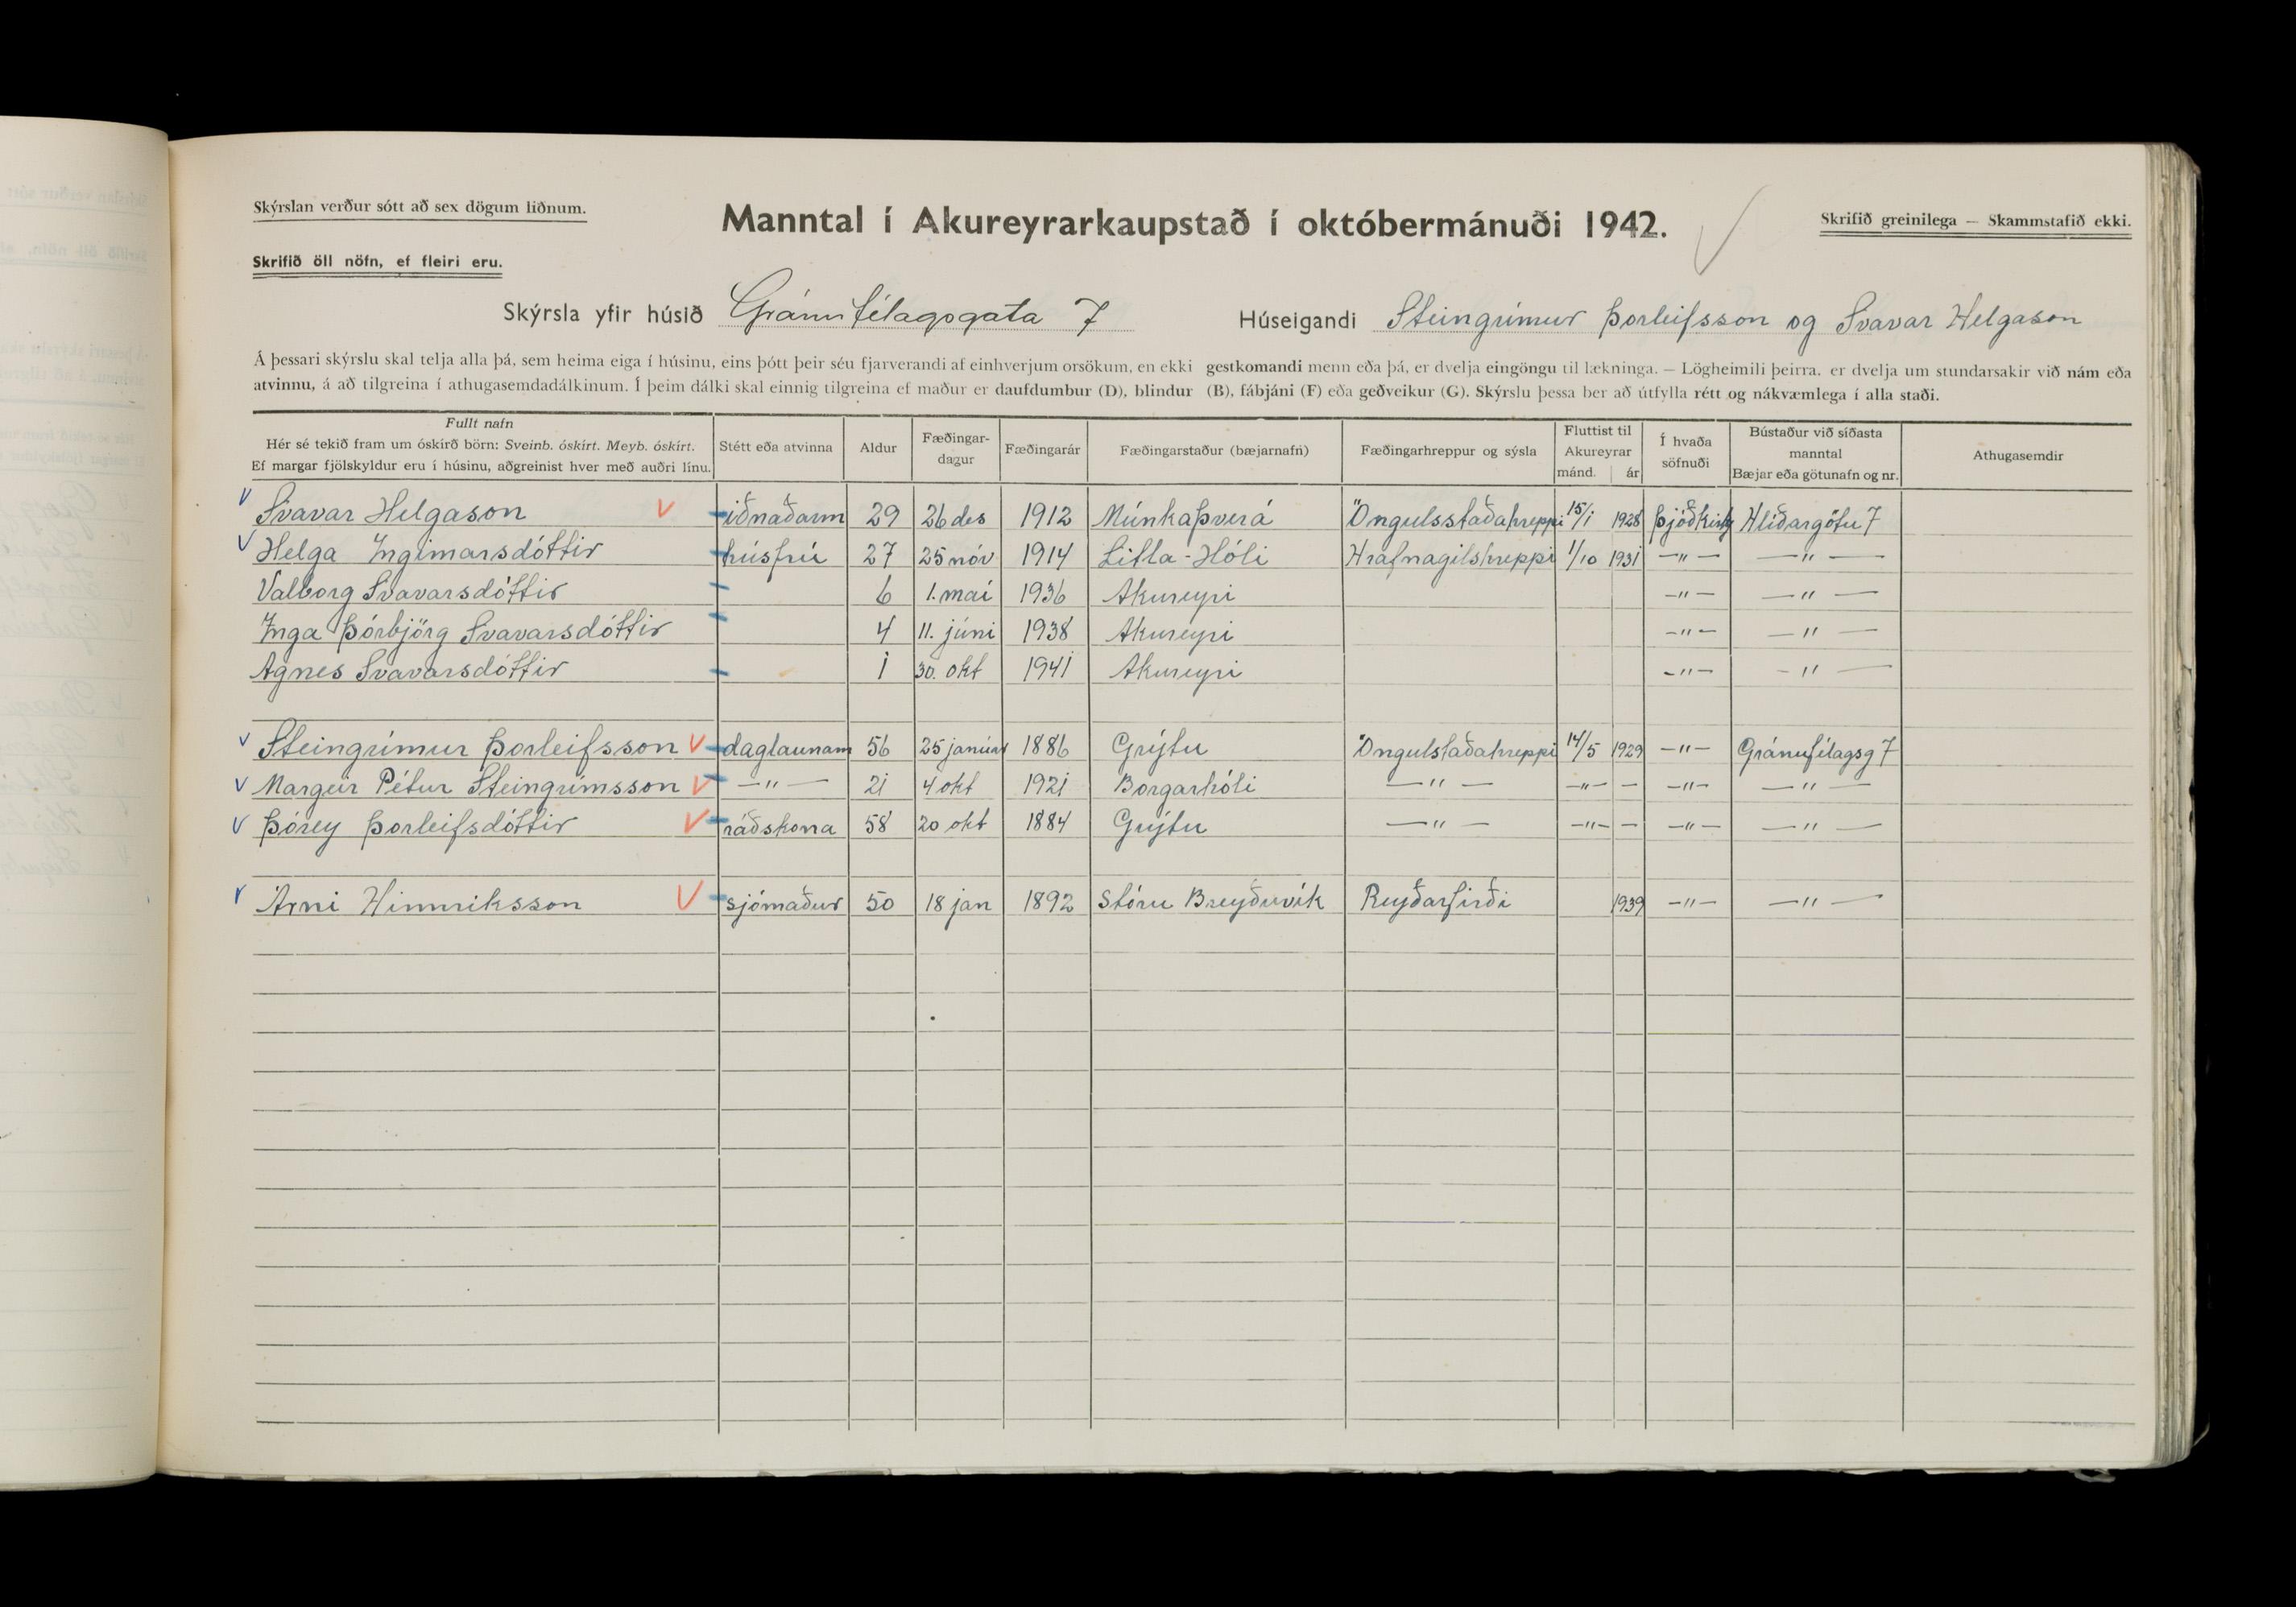 Skýrslan verður sótt að sex dögum liðnum.
Manntal í Akureyrarkaupstað í októbermánuði 1942.
Skrifið greinilega — Skammstafið ekki.
Skrifið öll nöfn, ef fleiri eru.
Skýrsla yfir húsið Gránufélagsgata 7 Húseigandi Steingrímur Þorleifsson og Svavar Helgason
Á þessari skýrslu skal telja alla þá, sem heima eiga í húsinu, eins þótt þeir séu fjarverandi af einhverjum orsökum, en ekki gestkomandi menn eða þá, er dvelja eingöngu til lækninga. — Lögheimili þeirra, er dvelja um stundarsakir við nám eða
atvinnu, á að tilgreina í athugasemdadálkinum. Í þeim dálki skal einnig tilgreina ef maður er daufdumbur (D), blindur (B), fábjáni (F) eða geðveikur (G). Skýrslu þessa ber að útfylla rétt og nákvæmlega í alla staði.
Fullt nafn
Hér sé tekið fram um óskírð börn: Sveinb. óskírt. Meyb. óskírt.
Ef margar fjölskyldur eru í húsinu, aðgreinist hver með auðri línu.
Stétt eða atvinna
Aldur
Fæðingar-
dagur
Fæðingarár
Fæðingarstaður (bæjarnafn)
Fæðingarhreppur og sýsla
Fluttist til
Akureyrar
mánd. ár
Í hvaða
söfnuði
Bústaður við síðasta
manntal
Bæjar eða götunafn og nr.
Athugasemdir
Svavar Helgason iðnaðarm 29 26 des 1912 Múnkaþverá Öngulsstaðahreppi 15/1 1928 Þjóðkirkj Hlíðargötu 7
Helga Ingimarsdóttir húsfrú 27 25 nóv 1914 Litla-Hóli Hrafnagilshreppi 1/10 1931 —"— —"—
Valborg Svavarsdóttir 6 1. maí 1936 Akureyri —"— —"—
Inga Þórbjörg Svavarsdóttir 4 11. júni 1938 Akureyri —"— —"—
Agnes Svavarsdóttir 1 30. okt 1941 Akureyri —"— —"—
Steingrímur Þorleifsson daglaunam 56 25 janúar 1886 Grýtu Öngulstaðahreppi 14/5 1929 —"— Gránufélagsg 7
Margeir Pétur Steingrímsson —"— 21 4 okt 1921 Borgarhóli —"— —"— — —"— —"—
Þórey Þorleifsdóttir ráðskona 58 20 okt 1884 Grýtu —"— —"— — —"— —"—
Árni Hinnriksson sjómaður 50 18 jan 1892 Stóru Breyðuvík Reyðarfirði 1939 —"— —"—